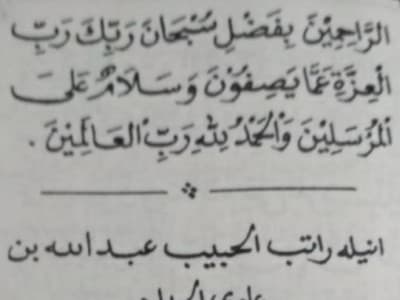 الرَّاحِمِيْنَ بِفَضْلِ سُبْحَانَ رَبِّكَ رَبِّ
الْعِزَّةِ عَمَّا يَصِفُوْنَ وَسَلَامٌ عَلَى
الْمُرْسَلِيْنَ وَالْحَمْدُ لِلّٰهِ رَبِّ الْعَالَمِيْنَ .
انيله راتب الحبيب عبد الله بن
علوي الحداد